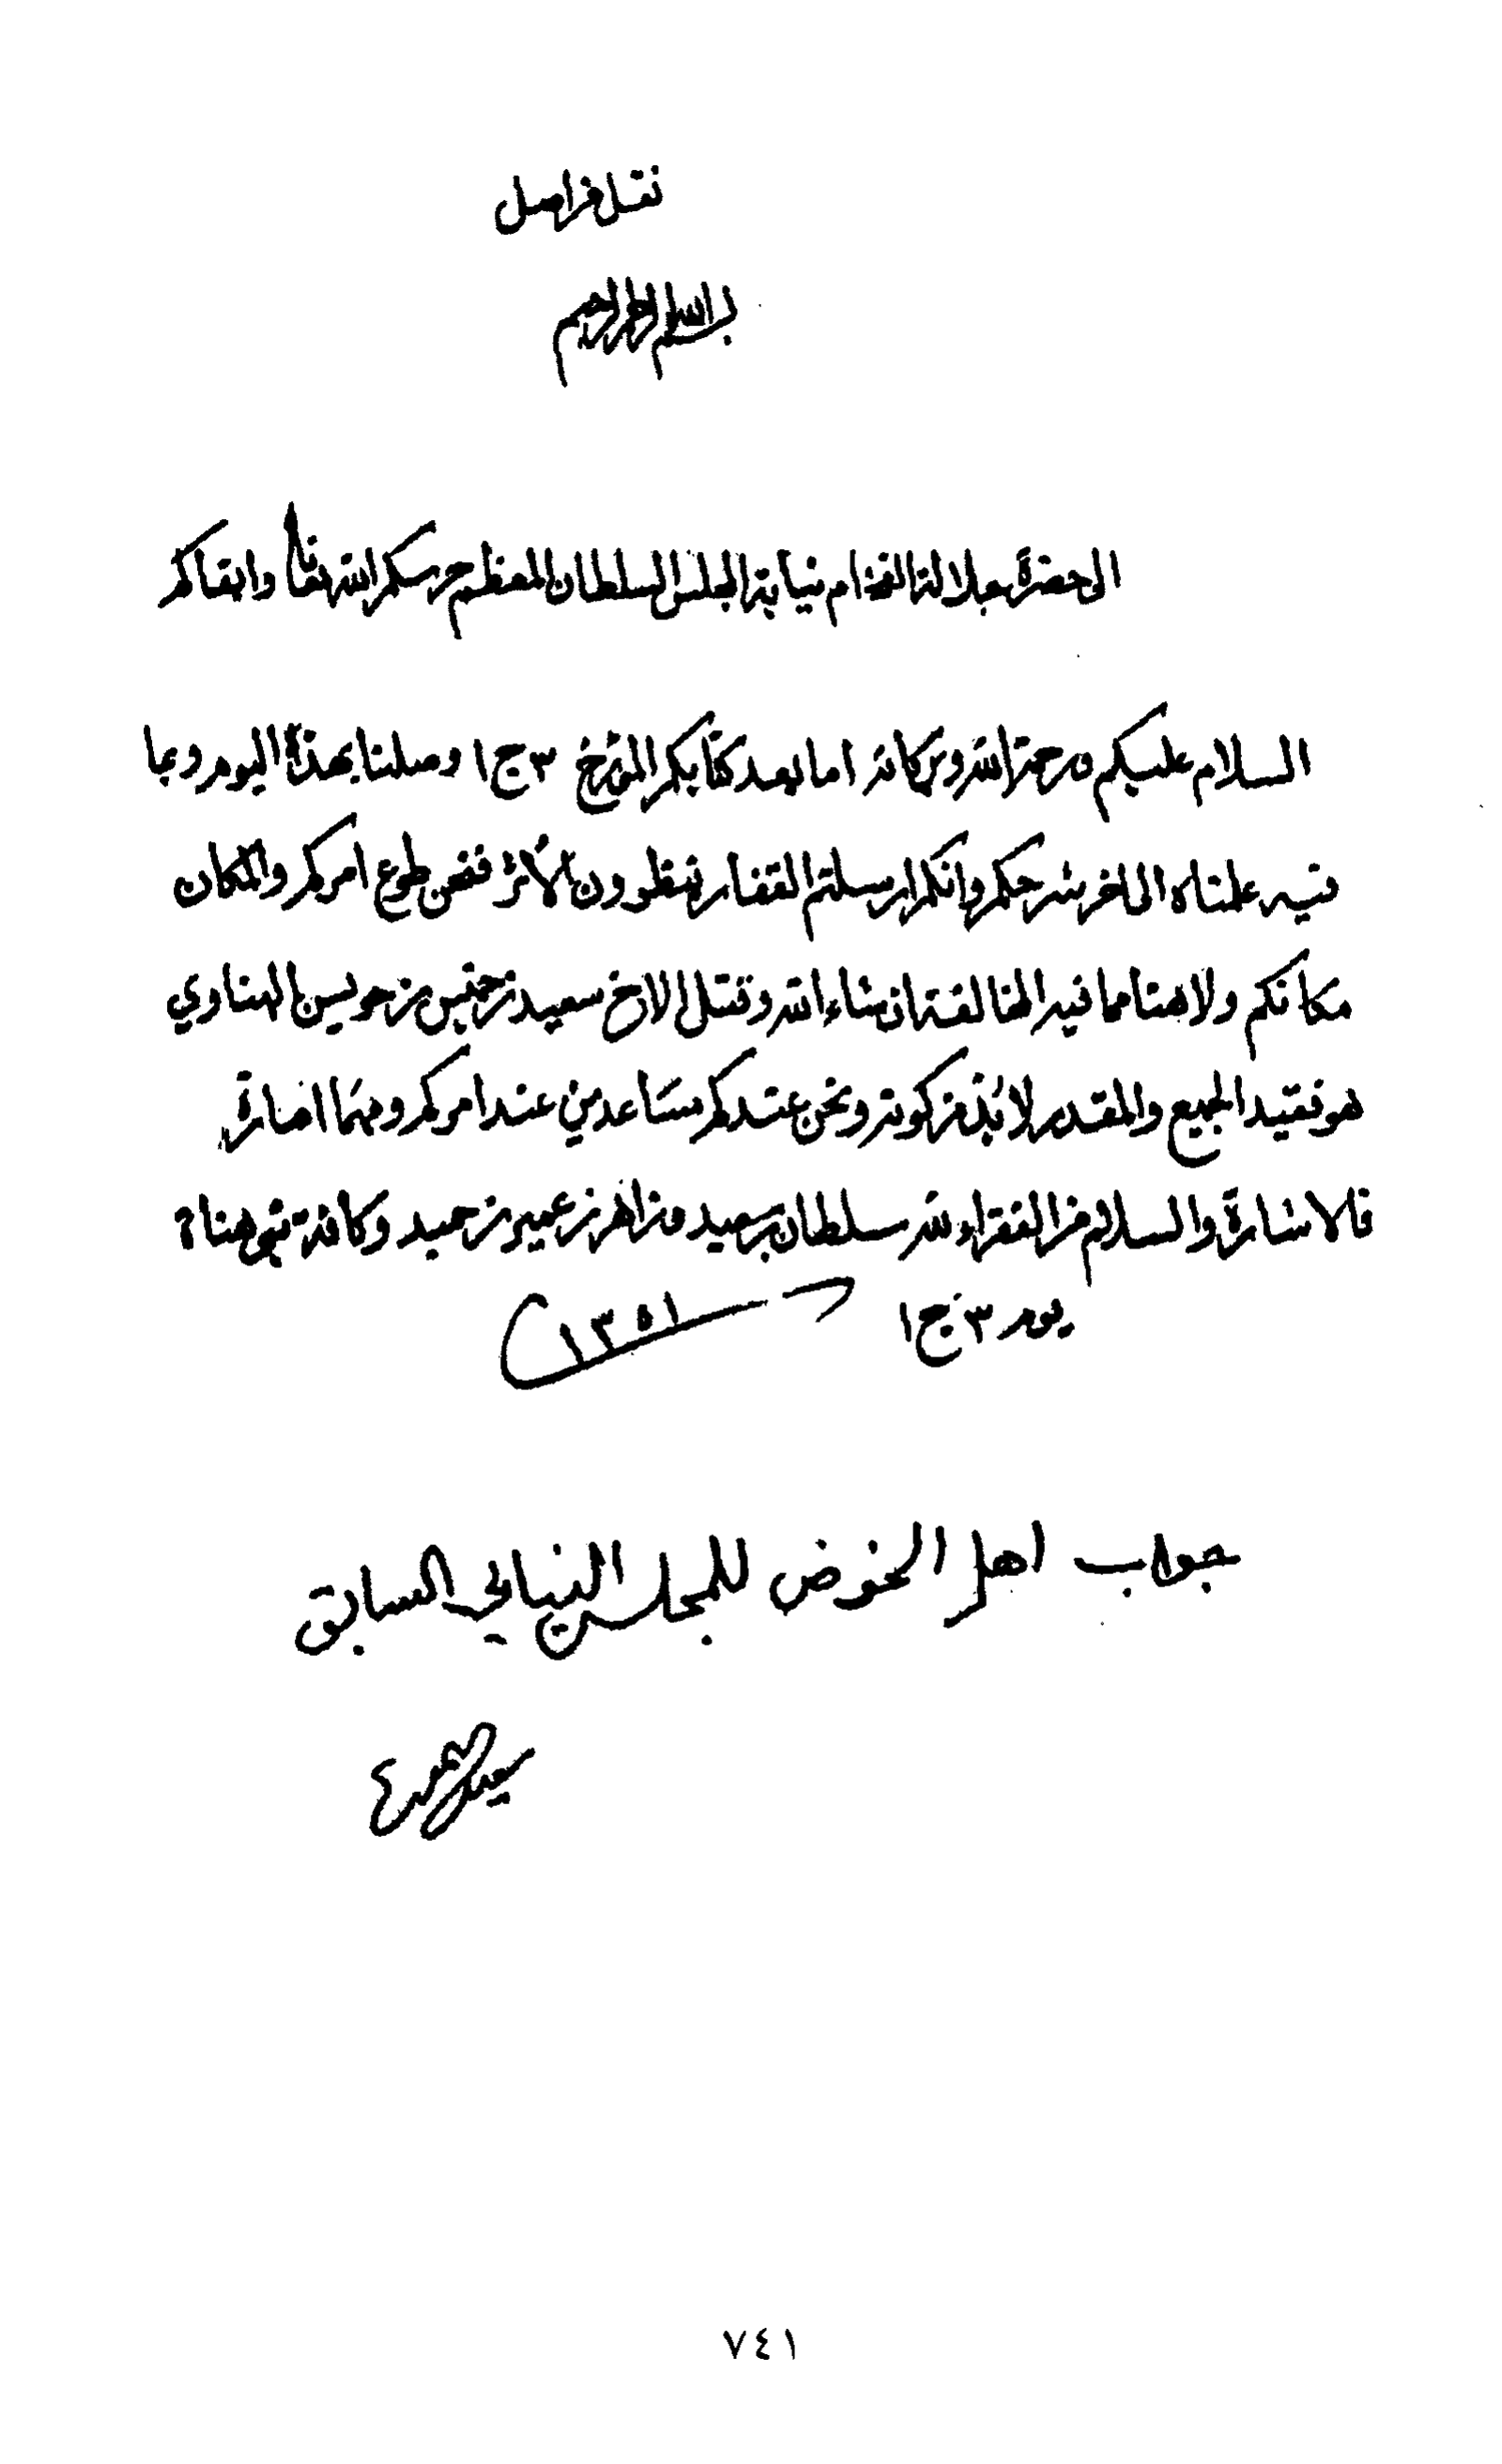 نقل من اصل
بسم الله الرحمن الرحيم
الى حضرة جلالة الفخام نيابة المجلس السلطان المعظم حرسكم الله تعالى وابقاكم
السلام عليكم ورحمة الله وبركاته اما بعد كتابكم المؤرخ ٣ ج ١ وصلنا بهذا اليوم وبما
فيه علمناه الى اخر شرحكم وانكم ارسلتم تنظرون الأثر فنحن طوع امركم والمكان
مكانكم ولا هنا ما فيه المخالفة ان شاء الله وقتل الاخ سعيد بن حويس الهنادي
هو فقيد الجميع والمقدر لا بد من كونه ونحن عندكم مساعدين عند امركم ومهما اشارة
فالاشارة والسلام من الفقراء لله سلطان بن سعيد وزاهر بن عمير بن حميد وكافة بني هناة
يوم ٣ ج ١ ١٣٥١
جواب اهل الخوض للمجلس النيابي السابق
٧٤١